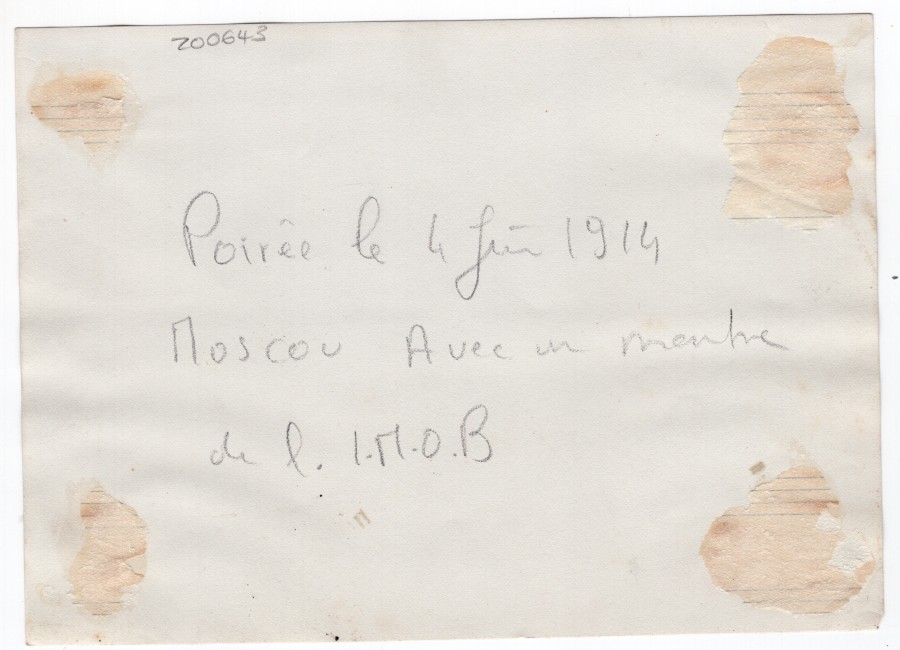 200643
Poirée le 4 Juin 1914
Moscou Avec un membre
de l. I.M.O.B